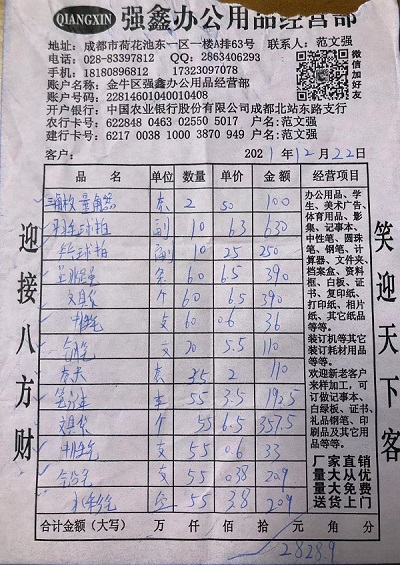 QIANGXIN 强鑫办公用品经营部
地址:成都市荷花池东一区一楼A排63号 联系人:范文强
电话:028-83397812 QQ:2863406293
手机:18180896812 17323097078
账户名称:金牛区强鑫办公用品经营部
账户号码:22814601040010408
开户银行:中国农业银行股份有限公司成都北站东路支行
农行卡号:622848 0463 02550 5017 户名:范文强
建行卡号:6217 0038 1000 3870 949 户名:范文强
微信加好友
客户: 2021年12月22日
品名 单位 数量 单价 金额 经营项目
2 50 100
羽毛球拍 副 10 63 630
乒乓球拍 副 10 25 250
60 6.5 390
文具袋 个 60 6.5 390
支 60 0.6 36
支 20 5.5 110
55 2 110
55 3.5 192.5
文具袋 个 55 6.5 357.5
支 55 0.6 33
支 55 209
55 3.8 209
办公用品、学生、美术广告、体育用品、影集、记事本、中性笔、圆珠笔、钢笔、计算器、文件夹、档案盒、资料框、白板、证书、复印纸、打印纸、相片纸、其它纸品等等。
装订机等其它装订耗材用品等等。
欢迎新老客户来样加工,可订做记事本、白绿板、证书、礼品钢笔、印刷品及其它用品等等。
厂家直销
量大从优
量大免费
送货上门
合计金额(大写) 万 仟 佰 拾 元 角 分
2828.9
迎接八方财
笑迎天下客